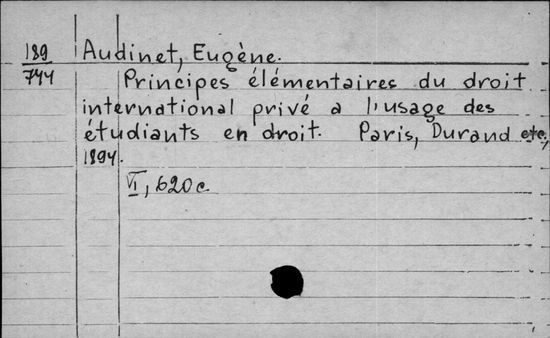 189
744
Audinet, Eugène.
Principes élémentaires du droit
international privé a l'usage des
étudiants en droit. Paris, Durand etc,
1894.
VI, 620 c